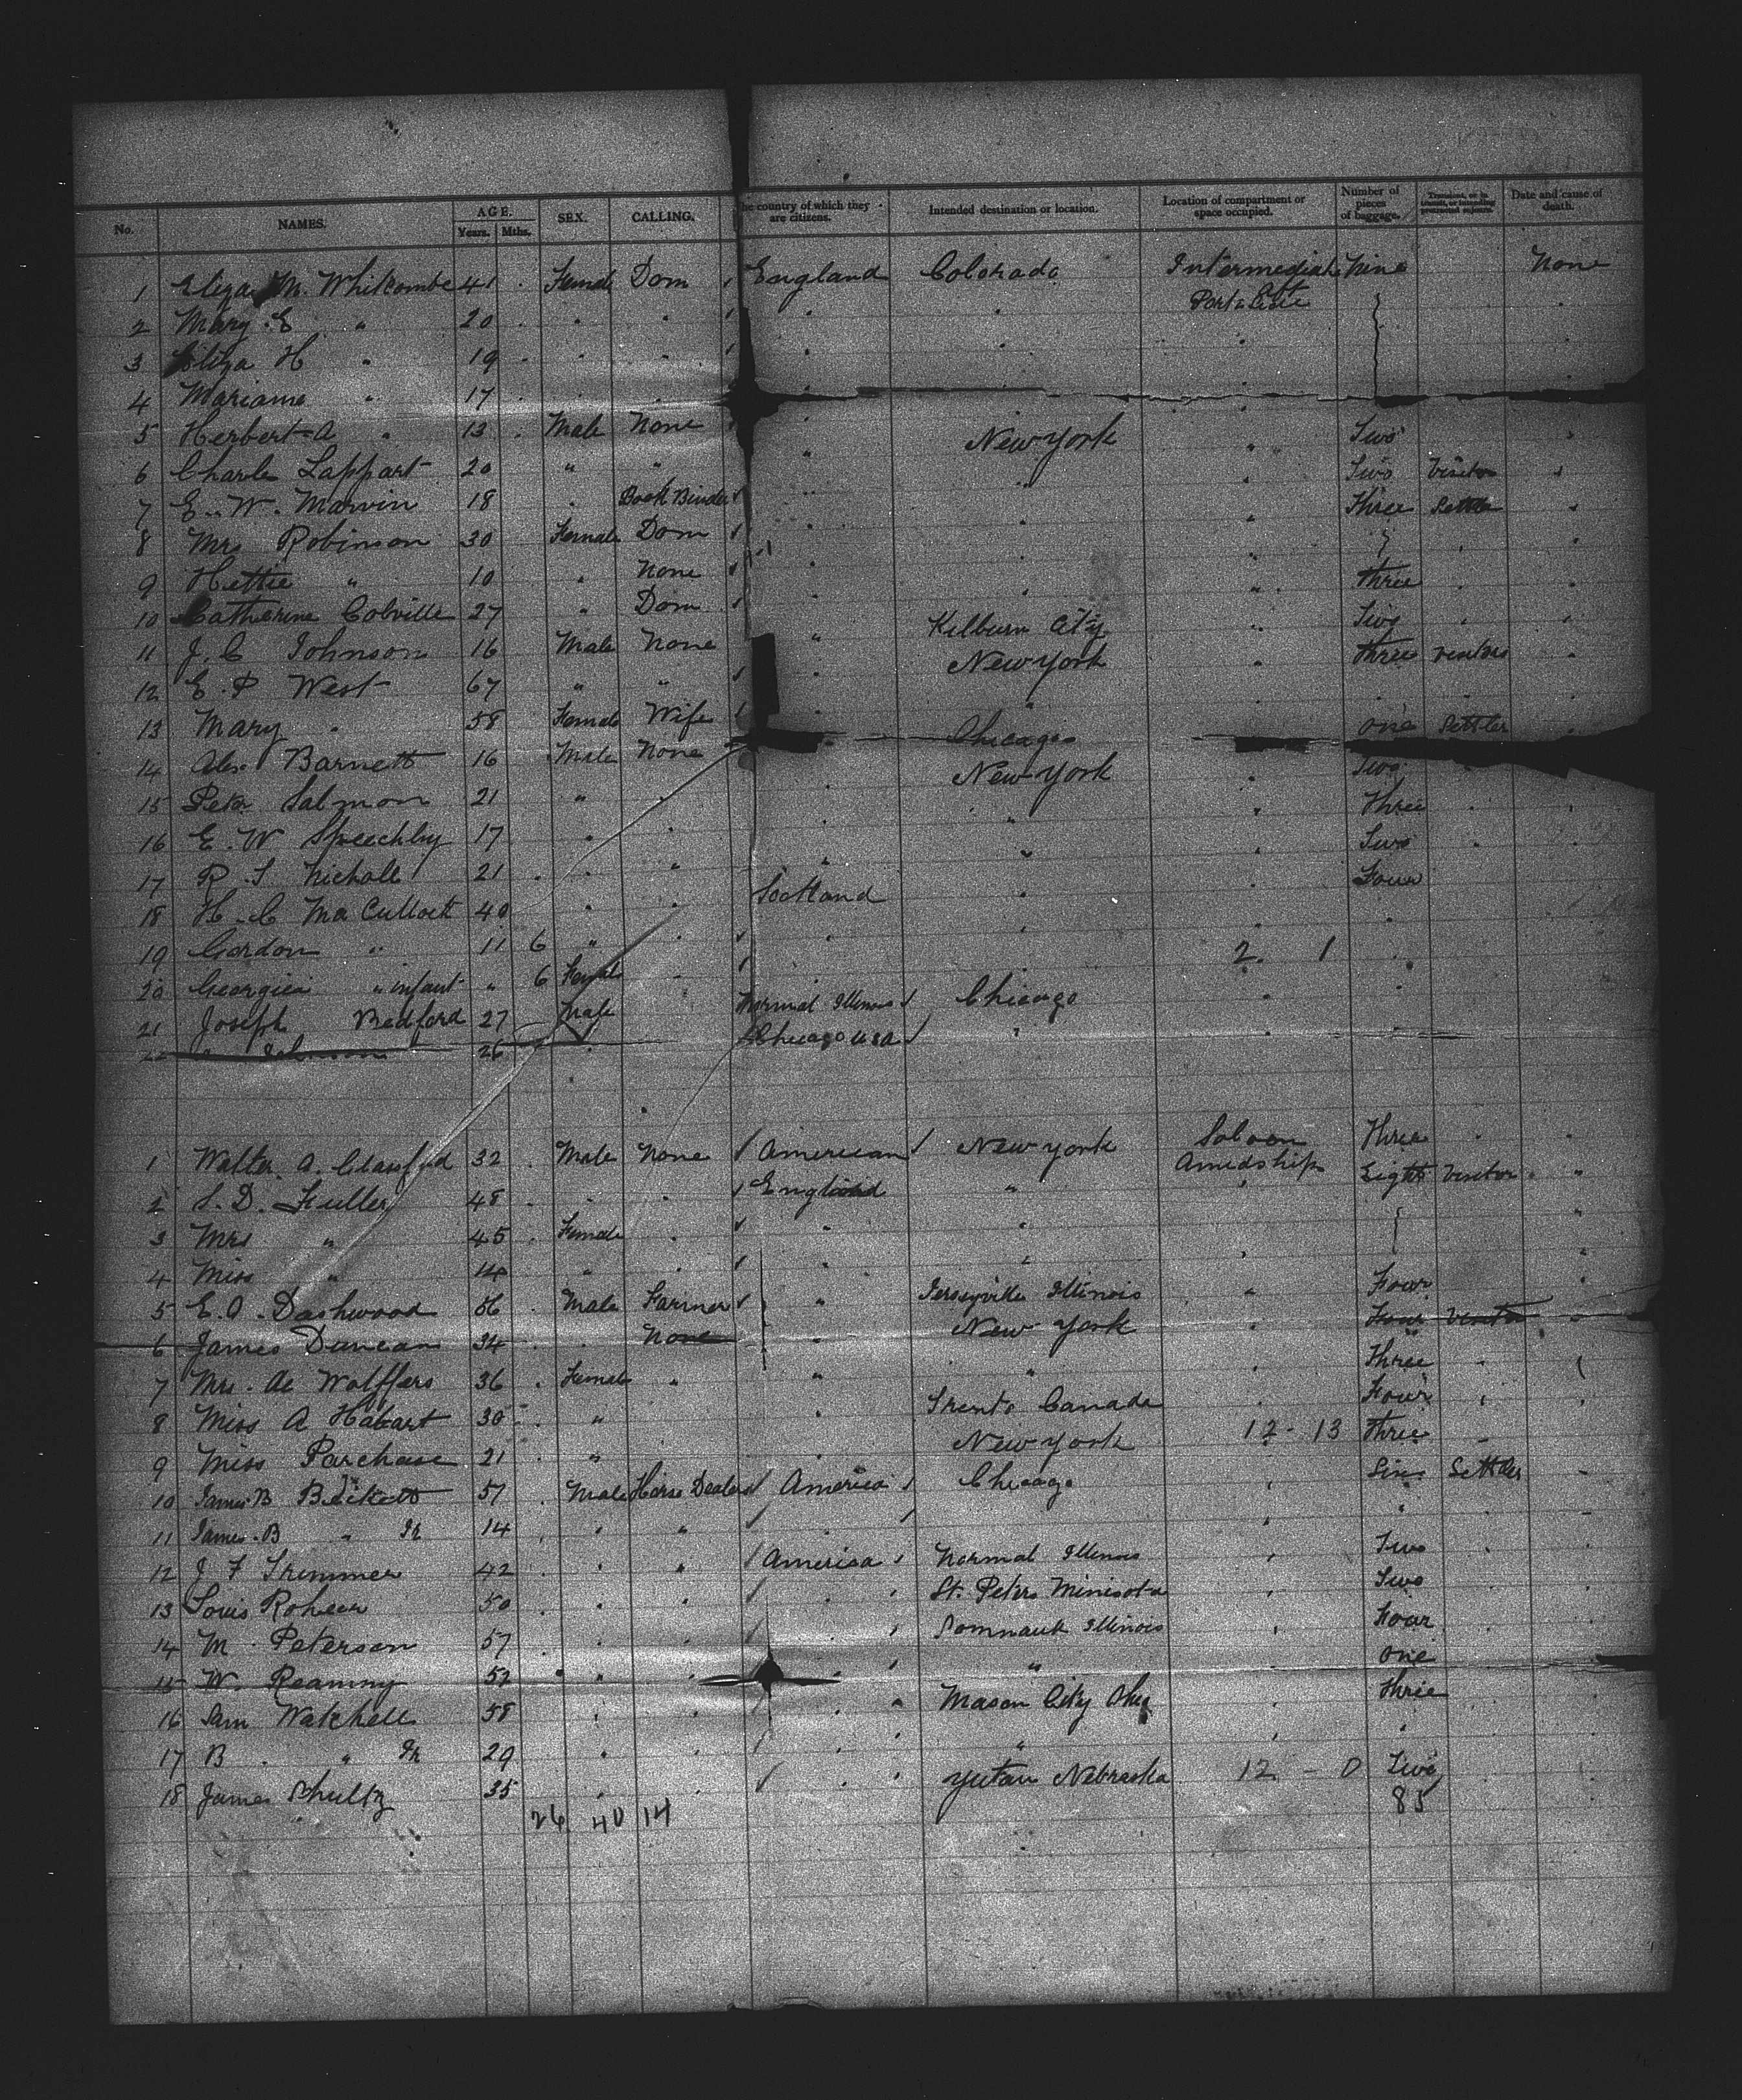 No. NAMES. AGE. Years. Mths. SEX. CALLING. The country of which they are citizens. Intended destination or location. Location of compartment or space occupied. Number of pieces of baggage. Transient, or in transit, or intending protracted sojourn. Date and cause of death.
1 Eliza M. Whitcombe 41 Female Dom England Colorado Intermediate Nine None
2 Mary E " 20 " " " " Port & Aft
3 Eliza H " 19 " "
4 Mariame " 17 " "
5 Herbert A " 13 Male None New York Two
6 Charles Lappart 20 " " " Two Visitor
7 E. W. Marvin 18 " Book Binder " Three Settler
8 Mrs Robinson 30 Female Dom
9 Hettie " 10 " None Three
10 Catherine Colville 27 " Dom Kilburn City Two
11 J. C Johnson 16 Male None " New York Three Visitors
12 E. P West 67 " "
13 Mary " 58 Female Wife Chicago One Settler
14 Alex Barnett 16 Male None New York Two
15 Peter Salmon 21 " " " Three
16 E. W Speechly 17 " " " Two
17 R. S Nicholl 21 " " Four
18 H. C Ma Culloch 40 " " Scotland "
19 Gordon " 11 6 " " 2 1
20 Georgiea " infant " 6 Female
21 Joseph Bedford 27 Male Normal Illinois Chicago
22 Johnson 26 " Chicago USA "
1 Walter A. Crawford 32 Male None American New York Saloon Three
2 S. D. Fuller 48 " " England " Amidships Eight Visitor
3 Mrs " 45 Female " " "
4 Miss " 14 " " "
5 E. A. Dashwood 56 Male Farmer " Jerseyville Illinois " Four
6 James Duncan 34 " None " New York " Four Visitor
7 Mrs. de Wolffers 36 Female " " " Three
8 Miss A Hobart 30 " " Trento Canada Four
9 Miss Parchase 21 " New York 12 - 13 Three
10 James B Beckett 57 Male Horse Dealer America Chicago Six Settler
11 James. B " Jr 14 " "
12 J F Trimmer 42 " " America Normal Illinois Two
13 Louis Rohear 50 " " " St. Peters Minisota Two
14 M. Peterson 57 " " " Somnauk Illinois Four
15 W. Reamny 52 " " " " One
16 Sam Watchell 58 " " " Mason City Three
17 B. " Jr 29 " " " "
18 James Shultz 35 " " Yutan Nebraska 12 - 0 Two
26 40 14 85